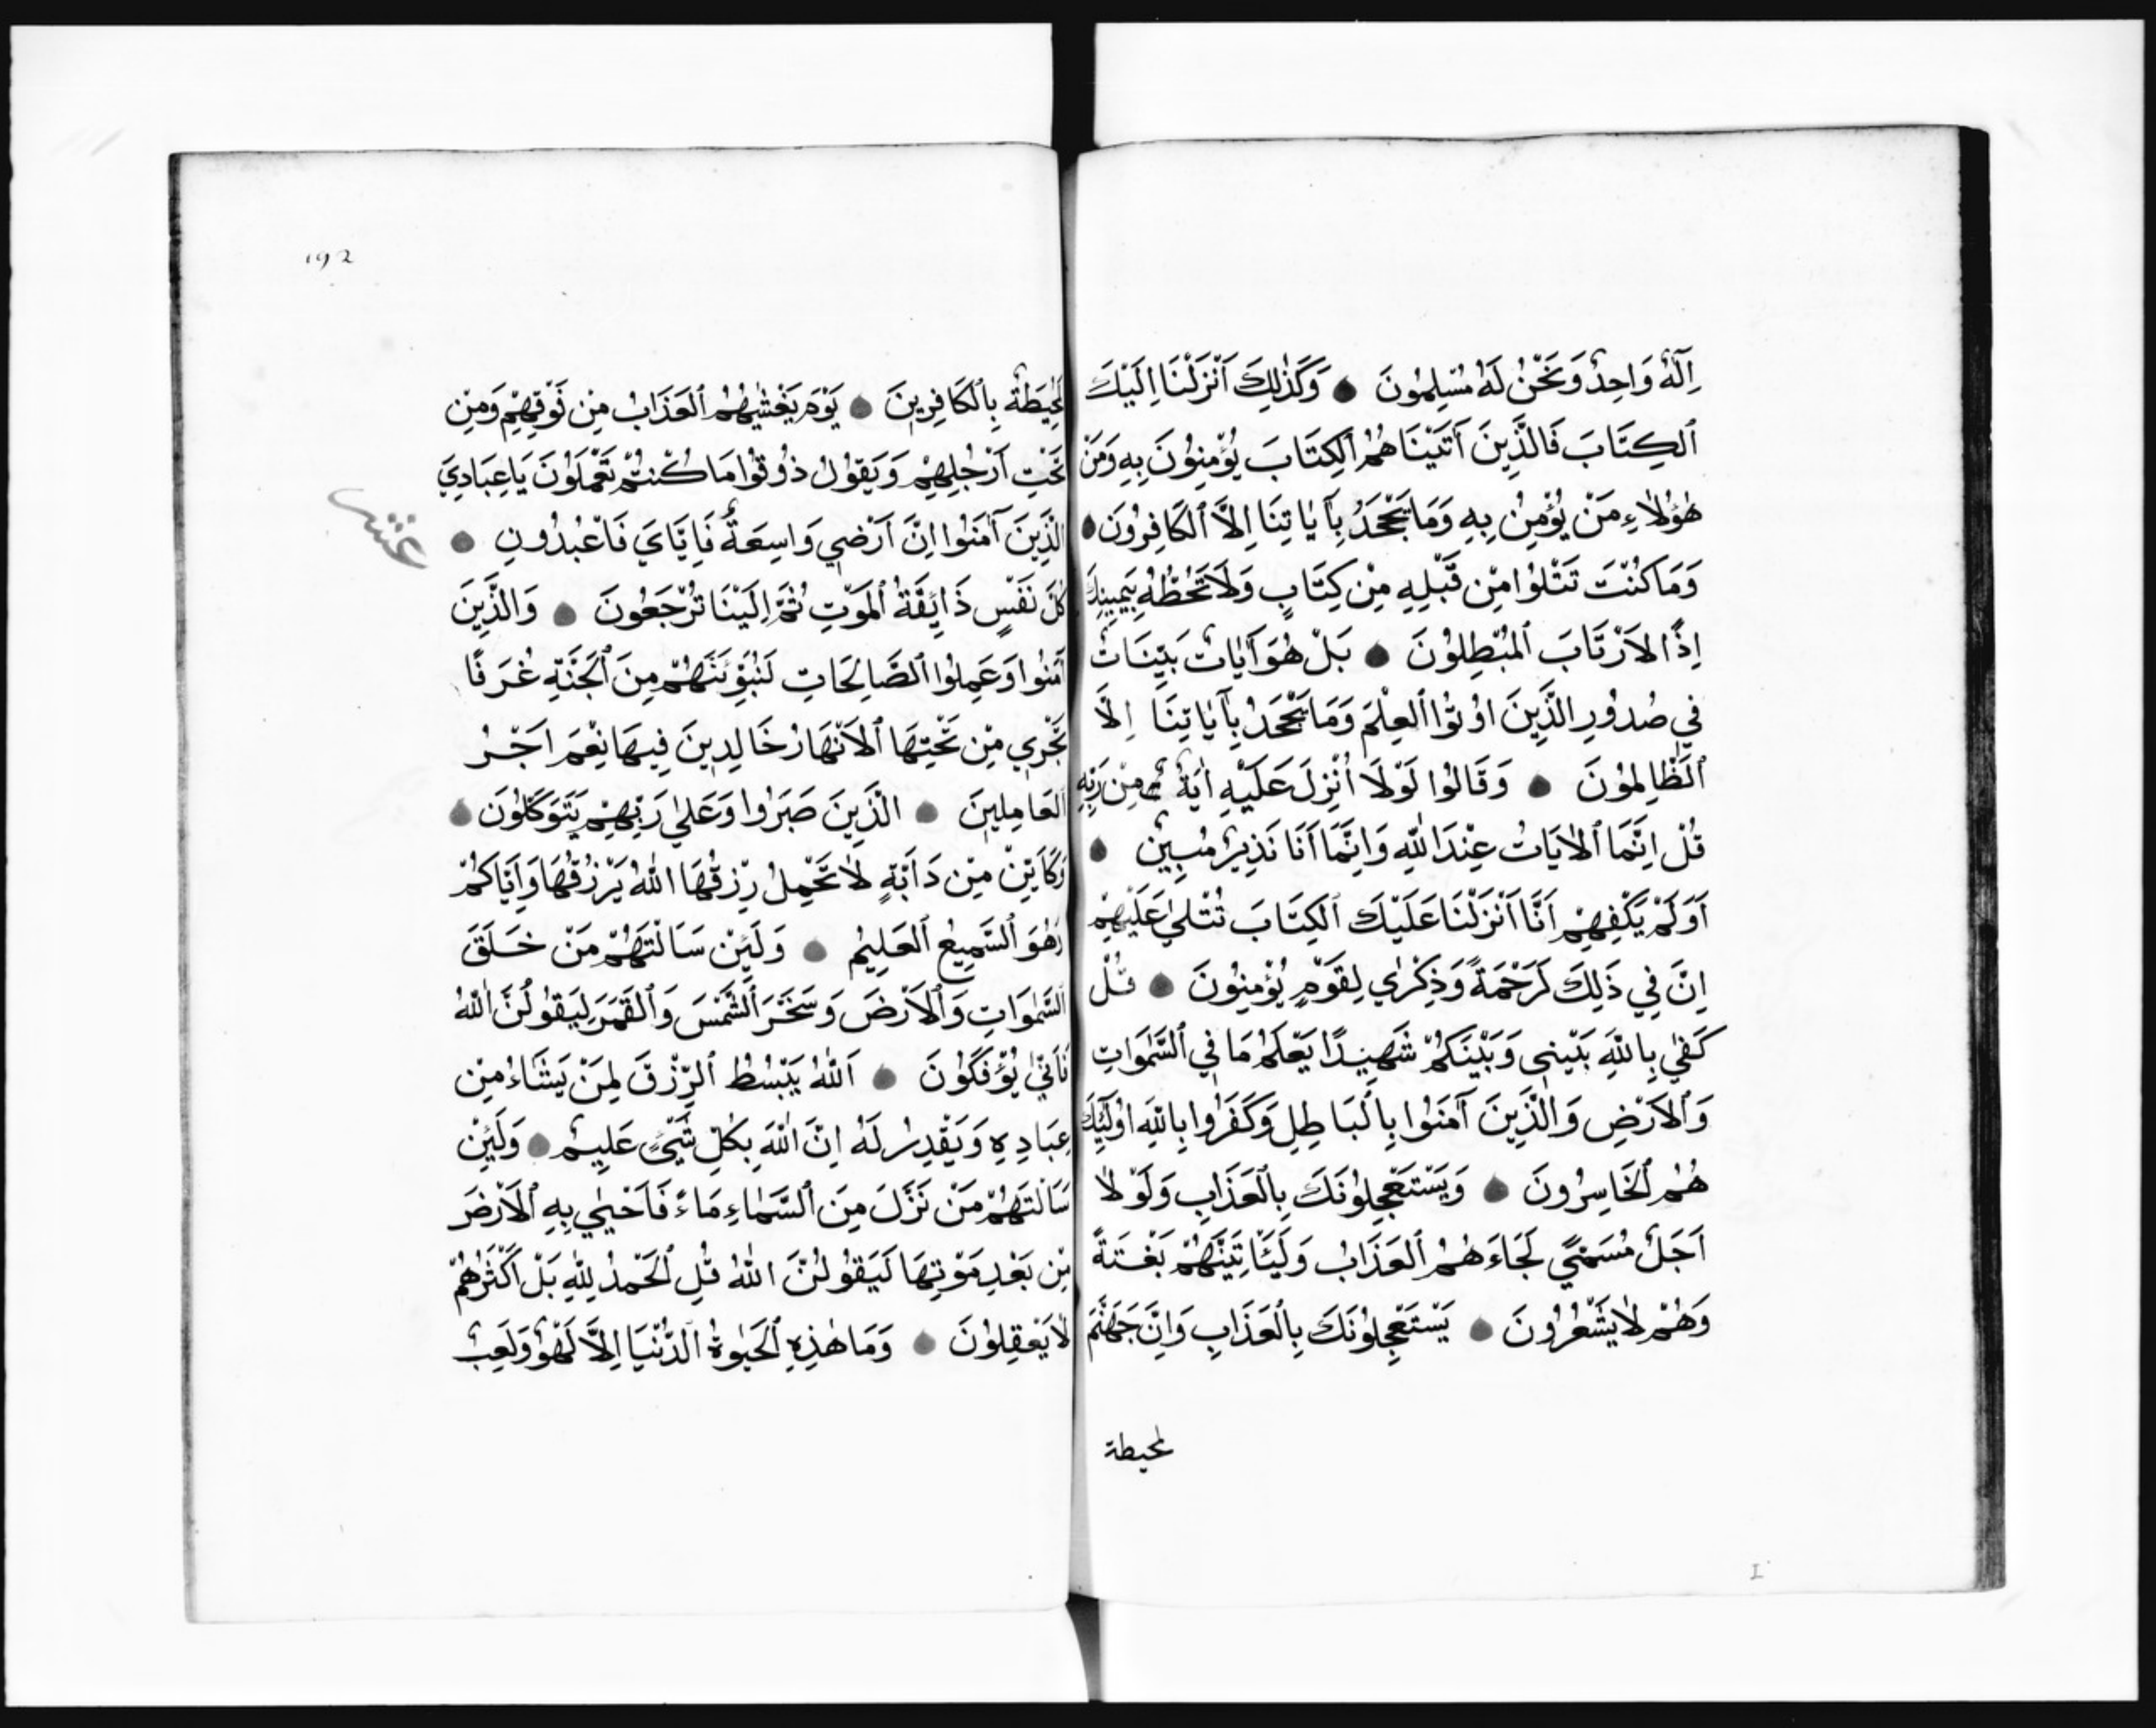 اِلٰهٌ وَاحِدٌ وَنَحْنُ لَهُ مُسْلِمُونَ وَكَذٰلِكَ اَنْزَلْنَا اِلَيْكَ
الْكِتَابَ فَالَّذِينَ آتَيْنَاهُمُ الْكِتَابَ يُؤْمِنُونَ بِهِ وَمَنْ
هٰؤُلَاءِ مَنْ يُؤْمِنُ بِهِ وَمَا يَجْحَدُ بِآيَاتِنَا اِلَّا الْكَافِرُونَ
وَمَا كُنْتَ تَتْلُوا مِنْ قَبْلِهِ مِنْ كِتَابٍ وَلَا تَخُطُّهُ بِيَمِينِكَ
اِذًا لَارْتَابَ الْمُبْطِلُونَ بَلْ هُوَ آيَاتٌ بَيِّنَاتٌ
فِي صُدُورِ الَّذِينَ اُوتُوا الْعِلْمَ وَمَا يَجْحَدُ بِآيَاتِنَا اِلَّا
الظَّالِمُونَ وَقَالُوا لَوْلَا اُنْزِلَ عَلَيْهِ اٰيَةٌ مِنْ رَبِّهِ
قُلْ اِنَّمَا الْاٰيَاتُ عِنْدَ اللّٰهِ وَاِنَّمَا اَنَا نَذِيرٌ مُبِينٌ
اَوَلَمْ يَكْفِهِمْ اَنَّا اَنْزَلْنَا عَلَيْكَ الْكِتَابَ تُتْلٰى عَلَيْهِمْ
اِنَّ فِي ذَلِكَ لَرَحْمَةً وَذِكْرٰي لِقَوْمٍ يُؤْمِنُونَ قُلْ
كَفٰي بِاللّٰهِ بَيْنِي وَبَيْنَكُمْ شَهِيدًا يَعْلَمُ مَا فِي السَّمٰوَاتِ
وَالْاَرْضِ وَالَّذِينَ آمَنُوا بِالْبَاطِلِ وَكَفَرُوا بِاللّٰهِ اُولٰئِكَ
هُمُ الْخَاسِرُونَ وَيَسْتَعْجِلُونَكَ بِالْعَذَابِ وَلَوْلَا
اَجَلٌ مُسَمًّي لَجَاءَهُمُ الْعَذَابُ وَلَيَأْتِيَنَّهُمْ بَغْتَةً
وَهُمْ لَا يَشْعُرُونَ يَسْتَعْجِلُونَكَ بِالْعَذَابِ وَاِنَّ جَهَنَّمَ
لمحيطة
١٩٢
لَمُحِيطَةٌ بِالْكَافِرِينَ يَوْمَ يَغْشٰيهُمُ الْعَذَابُ مِنْ فَوْقِهِمْ وَمِنْ
تَحْتِ اَرْجُلِهِمْ وَيَقُولُ ذُوقُوا مَا كُنْتُمْ تَعْمَلُونَ يَا عِبَادِيَ
الَّذِينَ آمَنُوا اِنَّ اَرْضِي وَاسِعَةٌ فَاِيَّايَ فَاعْبُدُونِ
عشر
كُلُّ نَفْسٍ ذَائِقَةُ الْمَوْتِ ثُمَّ اِلَيْنَا تُرْجَعُونَ وَالَّذِينَ
آمَنُوا وَعَمِلُوا الصَّالِحَاتِ لَنُبَوِّئَنَّهُمْ مِنَ الْجَنَّةِ غُرَفًا
تَجْرِي مِنْ تَحْتِهَا الْاَنْهَارُ خَالِدِينَ فِيهَا نِعْمَ اَجْرُ
الْعَامِلِينَ الَّذِينَ صَبَرُوا وَعَلٰي رَبِّهِمْ يَتَوَكَّلُونَ
وَكَاَيِّنْ مِنْ دَابَّةٍ لَا تَحْمِلُ رِزْقَهَا اللّٰهُ يَرْزُقُهَا وَاِيَّاكُمْ
وَهُوَ السَّمِيعُ الْعَلِيمُ وَلَئِنْ سَاَلْتَهُمْ مَنْ خَلَقَ
السَّمٰوَاتِ وَالْاَرْضَ وَسَخَّرَ الشَّمْسَ وَالْقَمَرَ لَيَقُولُنَّ اللّٰهُ
فَاَنّٰي يُؤْفَكُونَ اَللّٰهُ يَبْسُطُ الرِّزْقَ لِمَنْ يَشَاءُ مِنْ
عِبَادِهِ وَيَقْدِرُ لَهُ اِنَّ اللّٰهَ بِكُلِّ شَيْءٍ عَلِيمٌ وَلَئِنْ
سَاَلْتَهُمْ مَنْ نَزَّلَ مِنَ السَّمَاءِ مَاءً فَاَحْيٰي بِهِ الْاَرْضَ
مِنْ بَعْدِ مَوْتِهَا لَيَقُولُنَّ اللّٰهُ قُلِ الْحَمْدُ لِلّٰهِ بَلْ اَكْثَرُهُمْ
لَا يَعْقِلُونَ وَمَا هٰذِهِ الْحَيٰوةُ الدُّنْيَا اِلَّا لَهْوٌ وَلَعِبٌ